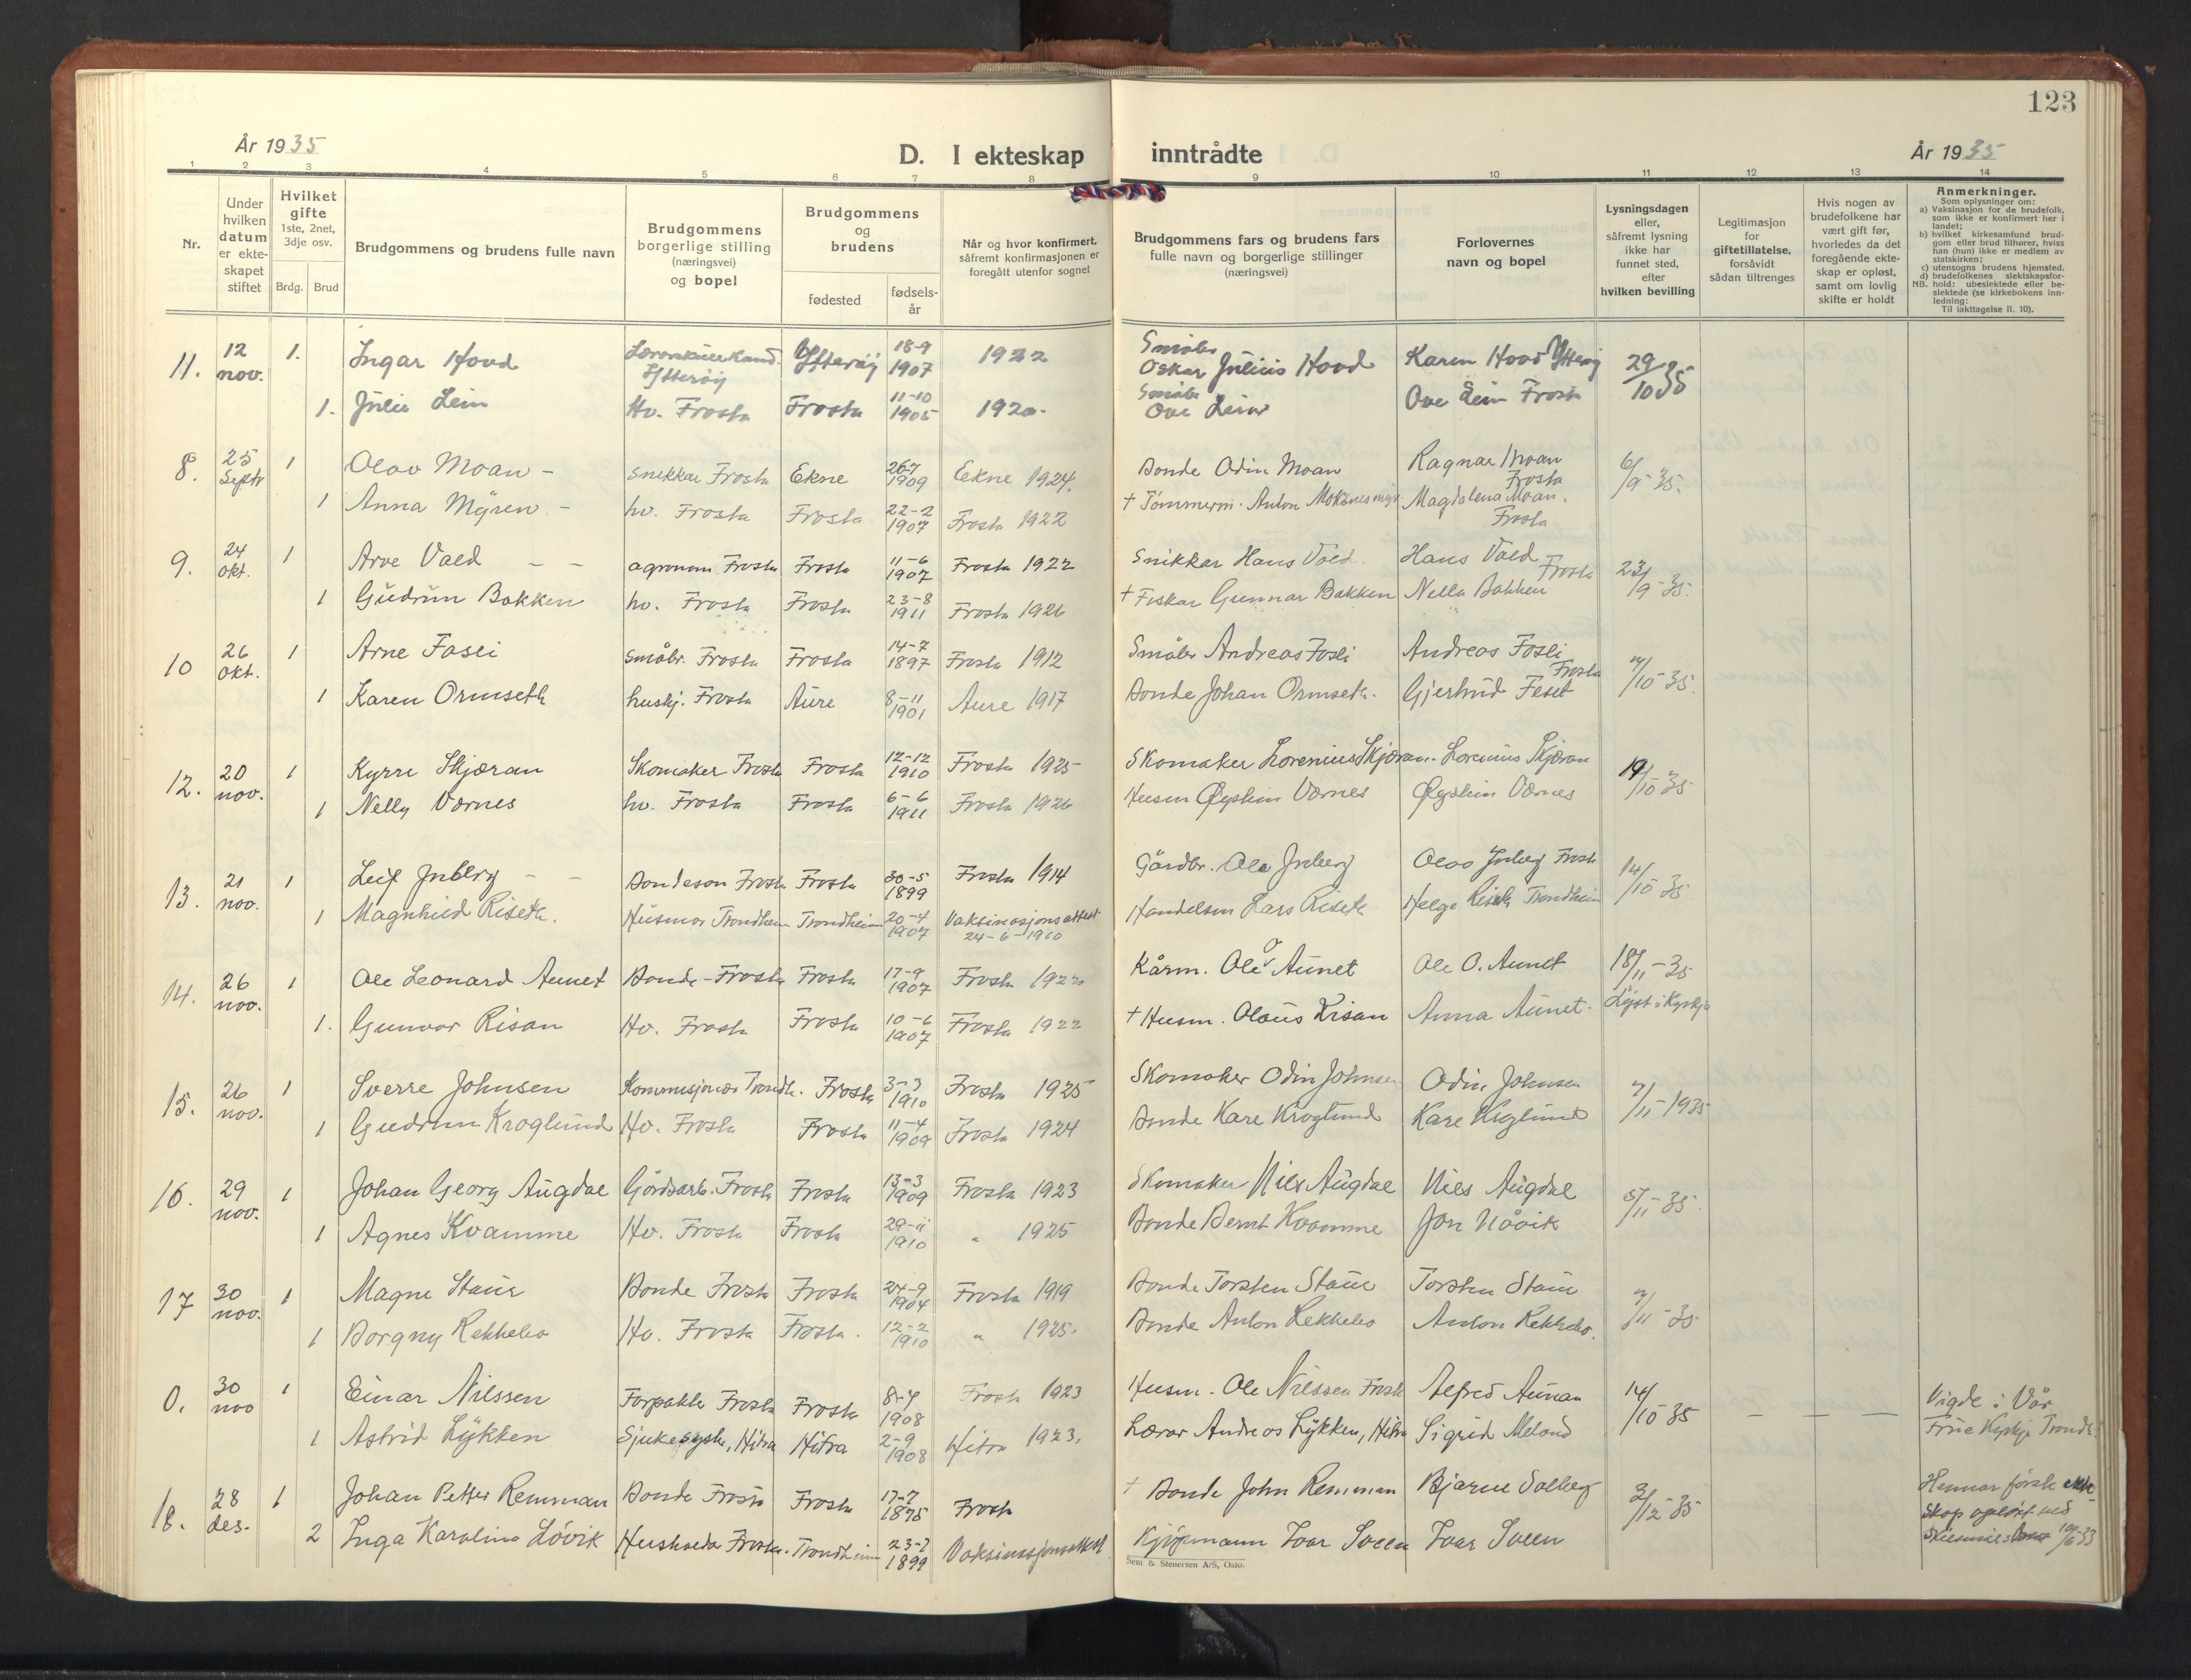 123
År 1935
D. I ekteskap inntrådte
År 1935
1 2 3 4 5 6 7 8 9 10 11 12 13 14
Nr.
Under hvilken datum er ekteskapet stiftet
Hvilket gifte 1ste, 2net, 3dje osv.
Brdg. Brud
Brudgommens og brudens fulle navn
Brudgommens borgerlige stilling (næringsvei) og bopel
Brudgommens og brudens
fødested
fødselsår
Når og hvor konfirmert, såfremt konfirmasjonen er foregått utenfor sognet
Brudgommens fars og brudens fars fulle navn og borgerlige stillinger (næringsvei)
Forlovernes navn og bopel
Lysningsdagen eller, såfremt lysning ikke har funnet sted, efter hvilken bevilling
Legitimasjon for giftetillatelse, forsåvidt sådan tiltrenges
Hvis nogen av brudefolkene har vært gift før, hvorledes da det foregående ekteskap er opløst, samt om lovlig skifte er holdt
Anmerkninger.
Som oplysninger om:
a) Vaksinasjon for de brudefolk, som ikke er konfirmert her i landet;
b) hvilket kirkesamfund brudgom eller brud tilhører, hviss han (hun) ikke er medlem av statskirken;
c) utensogns brudens hjemsted.
d) brudefolkenes slektskapsforhold: ubeslektede eller beslektede (se kirkebokens innledning:
NB.
Til iakttagelse II. 10).
11. 12 nov. 1. Ingar Hovd Ytterøy Ytterøy 18-9 1907 1922 Småbr Oskar Julius Hovd Karen Hovd Ytterøy 29/10 35
1. Julie Lein Hv. Frosta Frosta 11-10 1905 1920. Småbr Ove Lein Ove Lein Frosta
8. 25 Septr 1 Olav Moan - Snekkar Frosta Ekne 26-7 1909 Ekne 1924. Bonde Odin Moan Ragnar Moan Frosta 6/9-35.
1 Anna Myren - hv. Frosta Frosta 22-2 1907 Frosta 1922 † Tømmerm. Anton Moksnesmyr. Magdalena Moan. Frosta
9. 24 okt. 1 Arve Vold - - agronom Frosta Frosta 11-6 1907 Frosta 1922 Snikkar Hans Vold. Hans Vold Frosta 23/9-35.
1 Gudrun Bakken hv. Frosta Frosta 23-8 1911 Frosta 1926 † Fiskar Gunnar Bakken Nella Bakken "
10 26 okt. 1 Arne Fosli Småbr. Frosta Frosta 14-7 1897 Frosta 1912 Småbr Andreas Fosli Andreas Fosli Frosta 7/10-35.
1 Karen Ormseth hushj. Frosta Aure 8-11 1901 Aure 1917 Bonde Johan Ormseth. Gjertrud Feset
12. 20 nov. 1 Kyrre Skjæran Skomaker Frosta Frosta 12-12 1910 Frosta 1925 Skomaker Lorenius Skjæran. Lorenius Skjæran 19/10 35
1 Nelly Værnes hv. Frosta Frosta 6-6 1911 Frosta 1926 Husm Øystein Værnes Øystein Værnes
13. 21 nov. 1 Leif Juberg - - Bondeson Frosta Frosta 30-5 1899 Frosta 1914 Gårdbr. Ole Juberg Olav Juberg Frosta 14/10 35
1 Magnhild Riseth. Husmor Trondheim Trondheim 20-4 1907 Vaksinasjonsattest 24-6-1910 Handelsm Lars Riseth Helge Riseth Trondheim
14. 26 nov. 1 Ole Leonard Aunet Bonde-Frosta Frosta 17-9 1907 Frosta 1922 Kårm. Ole O. Aunet Ole O. Aunet 18/11-35
1. Gunvor Risan Hv. Frosta Frosta 10-6 1907 Frosta 1922 † Husm. Olaus Risan Anna Aunet. Lyst i Kyrkja
15. 26 nov. 1 Sverre Johnsen Kommisjonær Trondh. Frosta 3-3 1910 Frosta 1925 Skomaker Odin Johnsen Odin Johnsen 7/11-1935
1 Gudrun Kroglund Hv. Frosta Frosta 11-4 1909 Frosta 1924 Bonde Kare Kroglund Kare Kroglund
16. 29 nov. 1 Johan Georg Augdal Gårdsarb. Frosta Frosta 13-3 1909 Frosta 1923 Skomaker Nils Augdal Nils Augdal 5/11-35.
1 Agnes Kvamme Hv. Frosta Frosta 29-11 1910 " 1925 Bonde Bernt Kvamme Jon Nåvik
17 30 nov. 1 Magne Staur Bonde Frosta Frosta 24-9 1904 Frosta 1919 Bonde Torsten Staur Torsten Staur 7/11-35
1 Borgny Rekkebo Hv. Frosta Frosta. 12-2 1910 " 1925. Bonde Anton Rekkebo Anton Rekkebo.
0. 30 nov 1 Einar Nilssen Forpakter Frosta Frosta 8-4 1908 Frosta 1923 Husm. Ole Nilssen Frosta Alfred Aunan 14/10 35 - - - Vigde i Vår
1 Astrid Lykken Sjukesyster, Hitra Hitra 2-9 1908 Hitra 1923. Lærar Andreas Lykken, Hitra Sigrid Meland Frue Kyrkje Trondh.
18. 28 des. 1 Johan Petter Remman Bonde Frosta Frosta 17-7 1875 Frosta † Bonde John Remman Bjarne Salberg 3/12-35 Hennar første ekte
2 Inga Karoline Løvik Hushalda Frosta. Trondheim 23-7 1899 Vaksinasjonsattest Kjøpmann Ivar Sveen Ivar Sveen skap opløst ved
Sem & Stenersen A/S, Oslo.